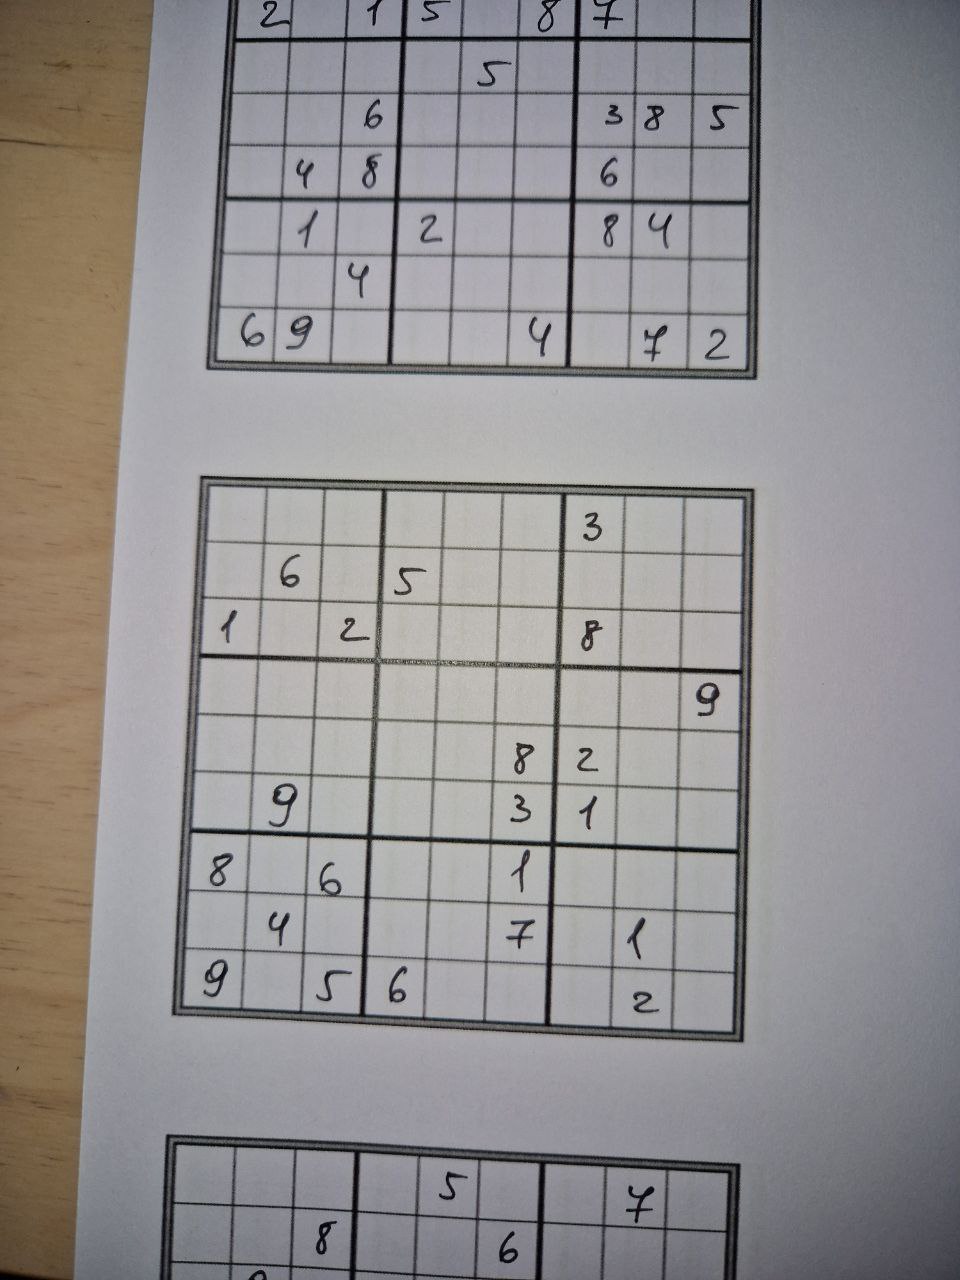 2 1 5 8 7
5
6 3 8 5
4 8 6
1 2 8 4
4
6 9 4 7 2
3
6 5
1 2 8
9
8 2
9 3 1
8 6 1
4 7 1
9 5 6 2
5 7
8 6